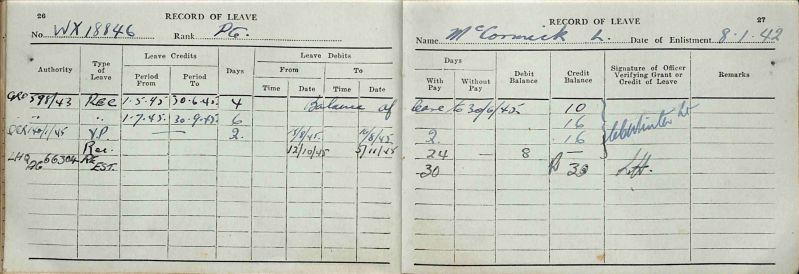 26 RECORD OF LEAVE
No. WX18846 Rank Pte.
Authority Type of Leave Leave Credits Days Leave Debits
Period From Period To From To
Time Date Time Date
GRO 598/43 Rec 1.5.45. 30.6.45. 4 Balance of
" " 1.7.45. 30.9.45. 6
VP 2. /8/45. /8/45.
Rec. 12/10/45 5/11/45
LHQ 66304 RE
EST.
RECORD OF LEAVE 27
Name McCormick L. Date of Enlistment 8.1.42
Days Debit Balance Credit Balance Signature of Officer Verifying Grant or Credit of Leave Remarks
With Pay Without Pay
leave to 30/6/45 10
16
2. 16
24 — 8 —
30 30